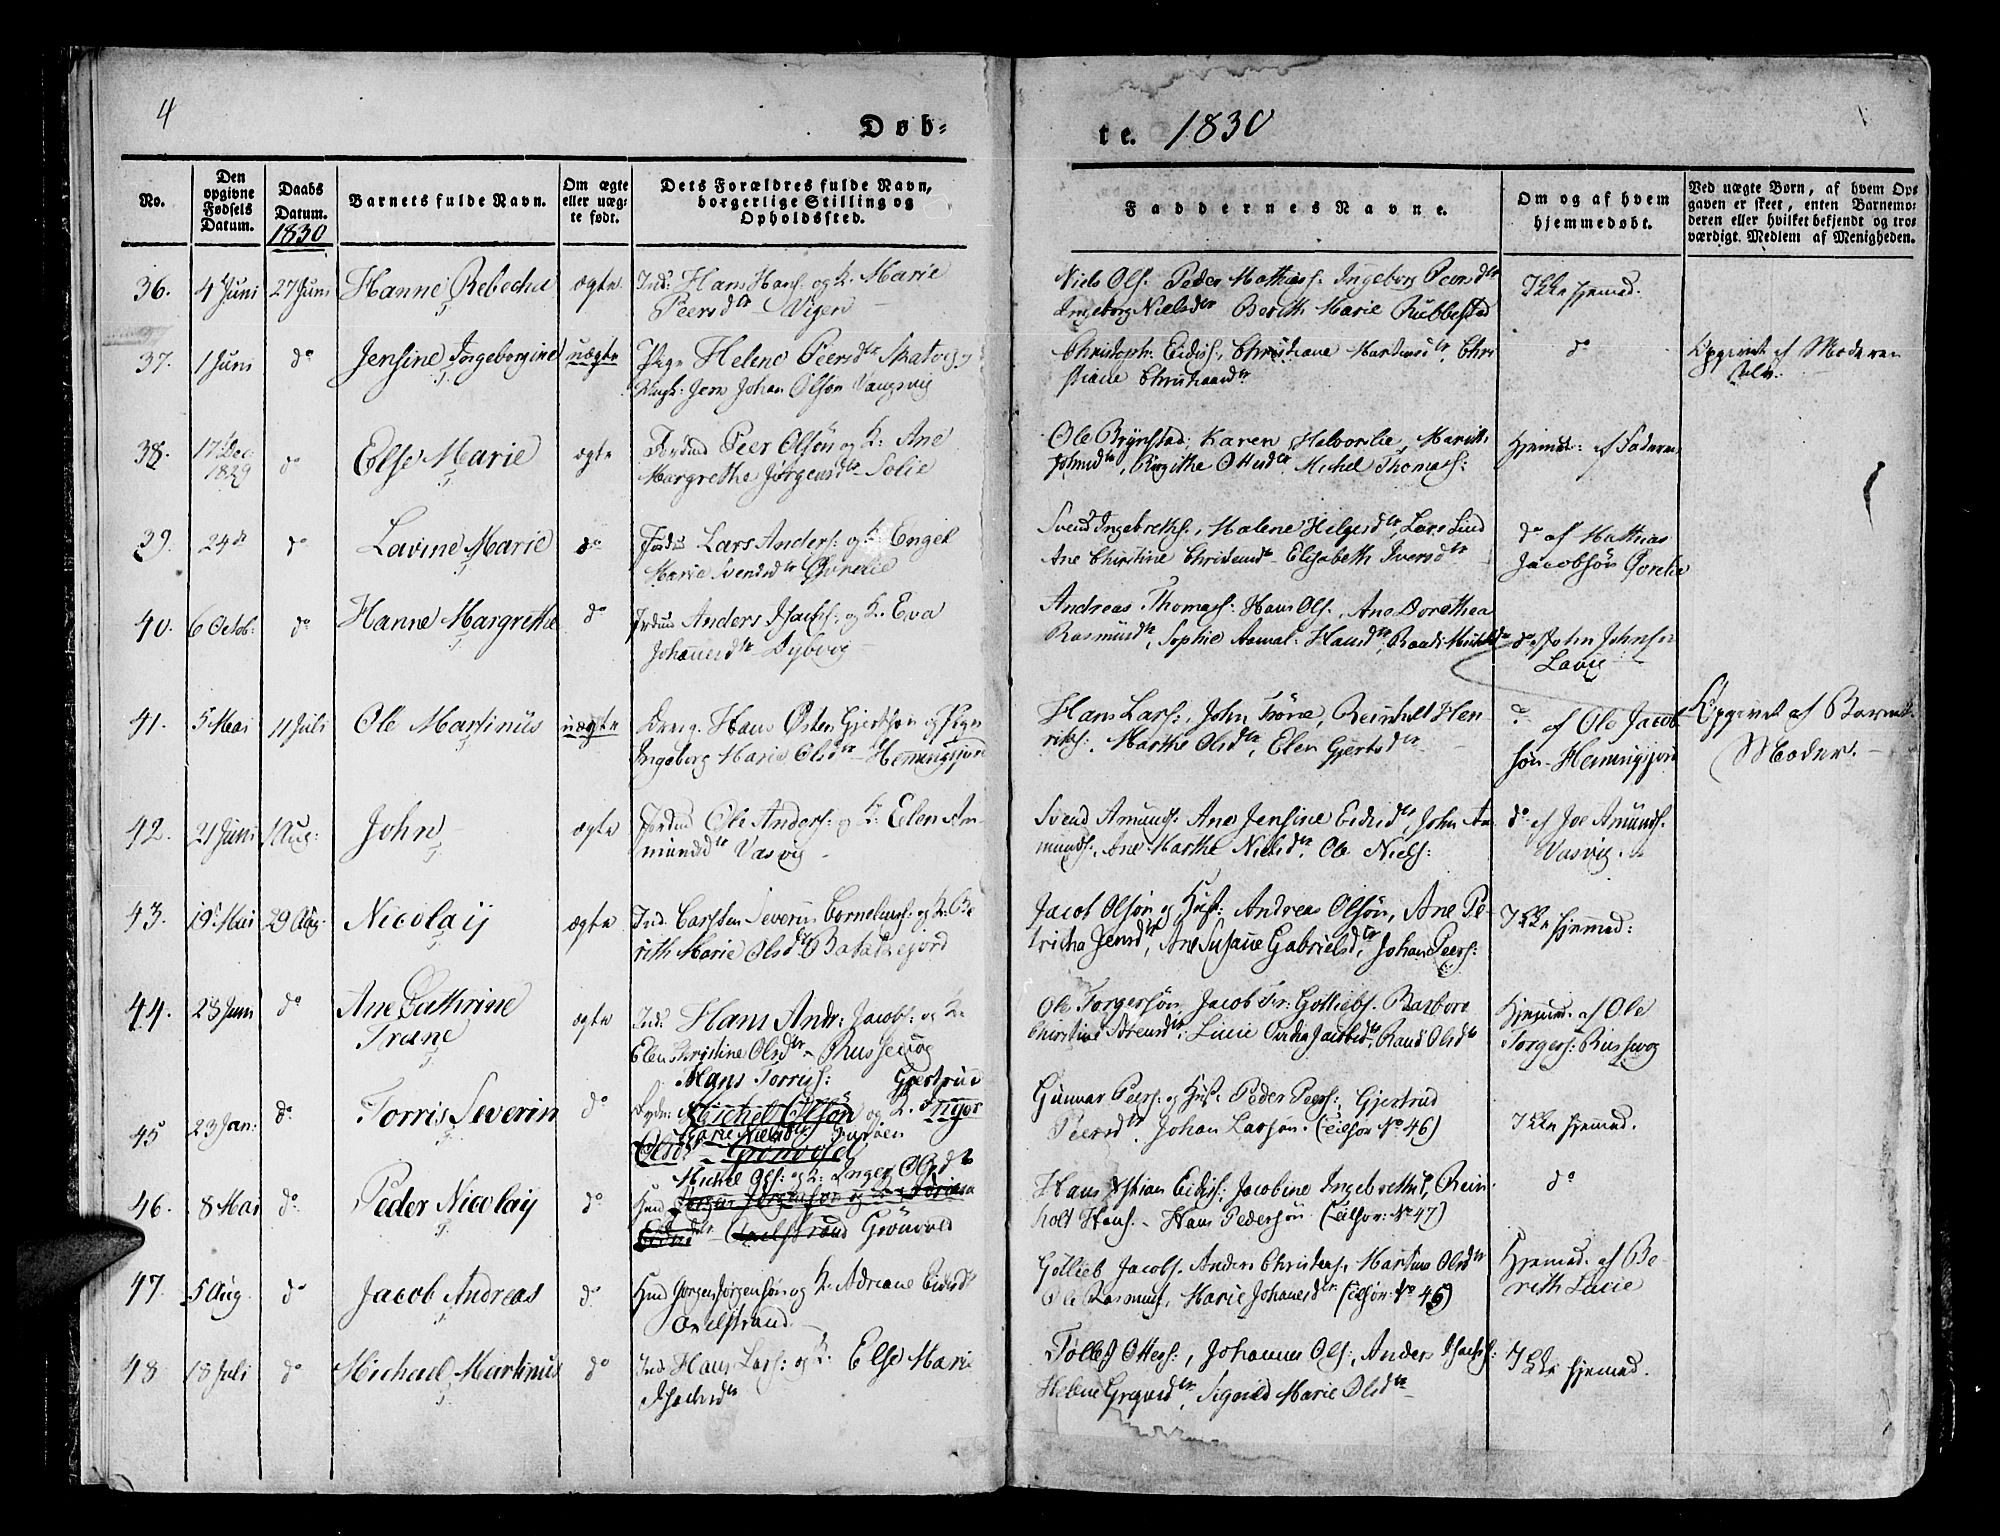 4
Døb-
te. 1830
No.
Den opgivne Fødsels Datum.
Daabs Datum. 1830
Barnets fulde Navn.
Om ægte eller uægte født.
Dets Forældres fulde Navn, borgerlige Stilling og Opholdssted.
Faddernes Navne.
Om og af hvem hjemmedøbt.
Ved uægte Børn, af hvem Opgaven er skeet, enten Barnemoderen eller hvilket bekjendt og troværdigt Medlem af Menigheden.
36. 4 Juni 27 Juni Hanne Rebecha ægte Ind: Hans Hans: og K. Marie
Peersdtr Vigen
Niels Ols: Peder Mathiess: Ingeborg Peersdtr
Ingeborg Nielsdtr Berith Marie Rubbestad
Ikke hjemmed.
37. 1 Juni do Jensine Ingeborgine uægte Pige Helene Peersdtr Skatvig,
Ungk: Jens Johan Olsøn Vangsvig
Christoph: Eidiss:, Christiane Martinusdtr, Chri
stiane Christiansdtr
do
Opgivet af Moderen
selv.
38. 17 Dec 1829 do Else Marie ægte Peer Olsøn og K: Ane
Margrethe Jørgensdtr Solie
Ole Brynstad, Karen Halvorslie, Marith
Johnsdtr, Birgithe Ottesdtr, Michel Thomass:
Hjemmed: af Faderen
39. 24de do Lavine Marie do Lars Anders: og K Engel
Marie Svendsdtr
Svend Ingebretks:, Malene Helgesdtr, Lars Lind
Ane Christine Elisabeth Iversdtr
do af Mathias
Jacobsøn
40. 6 Octob: do Hanne Margrethe do Anders Isachs: og K. Eva
Johannesdtr Dybvog
Andreas Thomass: Hans Ols:, Ane Dorothea
Rasmusdtr, Sophie Hansdtr,
do John Johns:
41. 5 Mai 11 Juli Ole Martinus uægte Hans Østen Gjertsøn og Pige
Ingeborg Marie Olsdtr Hemmingsjord
Hans Lars:, John Trøne, Reinholt Hen-
riks:, Marthe Olsdtr, Elen Gjertsdtr
do af Ole Jacob-
søn Hemmingsjord
Opgivet af Barnets
Moder.
42. 21 Juni 1 Aug: John ægte Ole Anders: og K: Elen Am-
mundsdtr Vasvig
Svend Amunds: Ane Jensine Eidisdtr, John Am-
munds:, Ane Marthe Nielsdtr, Ole Niels:
do af Joe Amunds.
Vasvig.
43. 19 Mai 29 Aug: Nicolaij ægte Ind. Carsten Severin Cornelius: og K: Be-
rith Marie Olsdtr
Jacob Olsøn og Hust: Andreas Olsøn, Ane Pe-
tricha Jensdtr, Ane Susane Gabrielsdtr, Johan Peers:
Ikke hjemmed:
44. 28 Juni do Ane Cathrine
Trane ægte Ind: Hans Andr: Jacobs: og K.
Elen Christine Olsdtr Russevog
Ole Torgersøn, Jacob Fr: Gottliebs. Barbora
Christine Lucie Jacobsdtr, Rand Olsdtr
Hjemmed. af Ole
Torgers: Russevog
45 23 Jan: do Torris Severin do Hans Torris: Gjertrud
Michel Olsøn og K. Inger
Marie Nielsdtr
Olsdtr Grønvold
Gunnar Peers: og Hust. Peder Peers:, Gjertrud
Peersdtr Johan Larsøn. (Tilføi No 46)
Ikke hjemmed.
46. 8 Mai do Peder Nicolaij do Michel Ols: og K: Inger Olsdtr
Hmd Jørgen Jørgensøn og K.
Axelstrand Grønvold
Hans Eidis: Jacobine Rein-
holt Hans: Hans Pedersøn (No 47)
do
47. 5 Aug. do Jacob Andreas do Hmd Jørgen Jørgensøn og K. Adriane Eidisdtr
Axelstrand
Gotlieb Jacobs. Anders Christens:, Martine Olsdtr
Ole Rasmus:, Marie Johannesdtr. (No 46)
Hjemmed. af Be-
reth Lucie
48 18 Juli do Michael Martinus do Ind Hans Lars: og K. Else Marie
Isachsdtr
Tollef Ottess:, Johannes Ols:, Anders Isachs:
Helene Sigvild Marie Olsdtr
Ikke hjemmed.